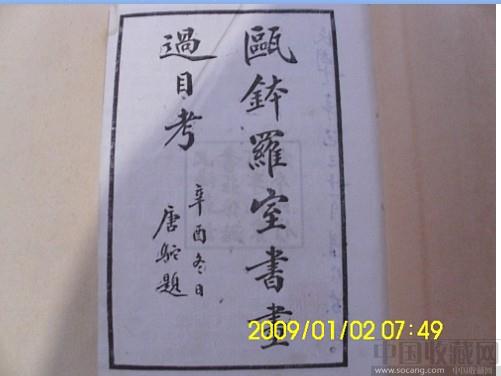 甌鉢羅室書畫
過目考
辛酉冬日
唐駝題
2009/01/02 07:49
中国收藏网
www.socang.com 中国收藏网